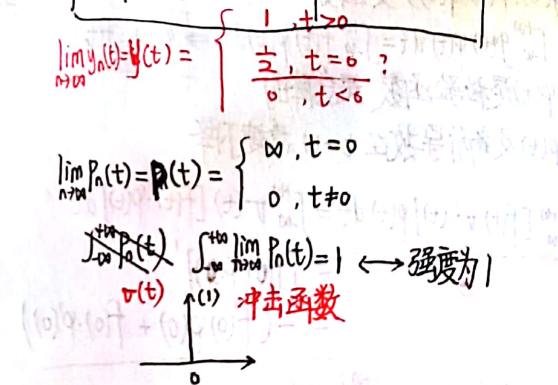 lim n→∞ yₙ(t)=y(t) = { 1 , t>0
1/2 , t=0 ?
0 , t<0
lim n→∞ Pₙ(t)=P(t) = { ∞ , t=0
0 , t≠0
∫₋∞⁺∞ Pₙ(t) ∫₋∞⁺∞ lim n→∞ Pₙ(t) = 1 ⟷ 强度为1
(1) 冲击函数
0